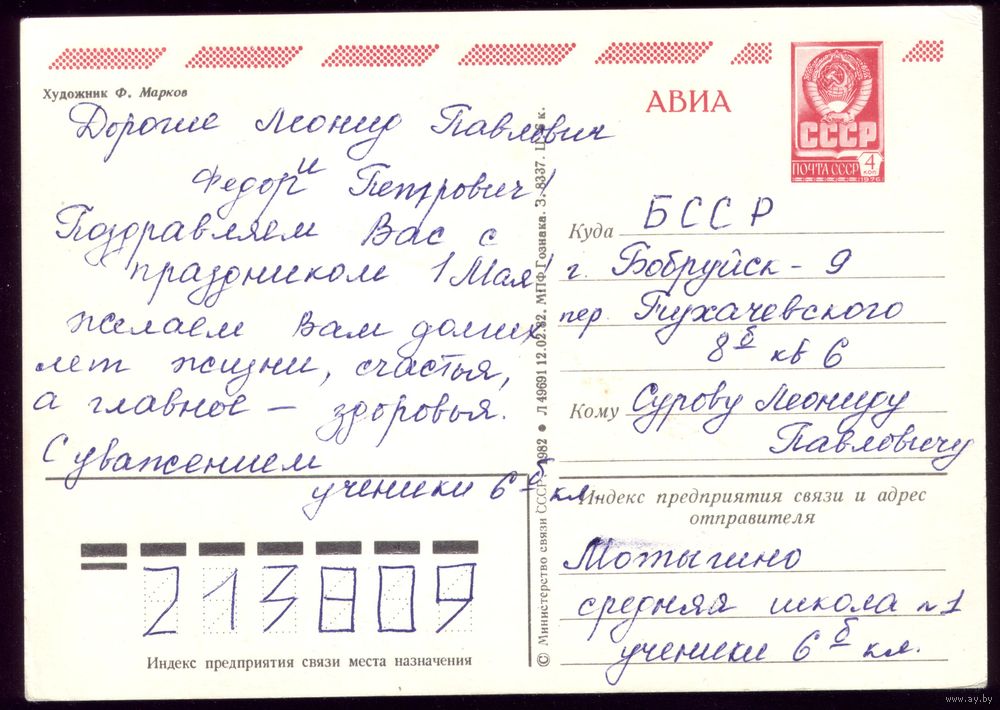 Художник Ф. Марков
Дорогие Леонид Павлович
и
Федор Петрович!
Поздравляем Вас с
праздником 1 Мая!
Желаем Вам долгих
лет жизни, счастья,
а главное – здоровья.
С уважением
ученики 6б кл.
213809
Индекс предприятия связи места назначения
© Министерство связи СССР. 1982 ● Л 49691 12.02.82. МПФ Гознака. З. 8337. Ц. 6 к.
АВИА
СССР
ПОЧТА СССР
4
КОП
1976
Куда БССР
г. Бобруйск - 9
пер. Тухачевского
8б кв 6
Кому Сурову Леониду
Павловичу
Индекс предприятия связи и адрес
отправителя
Мотыгино
средняя школа №1
ученики 6б кл.
www.ay.by